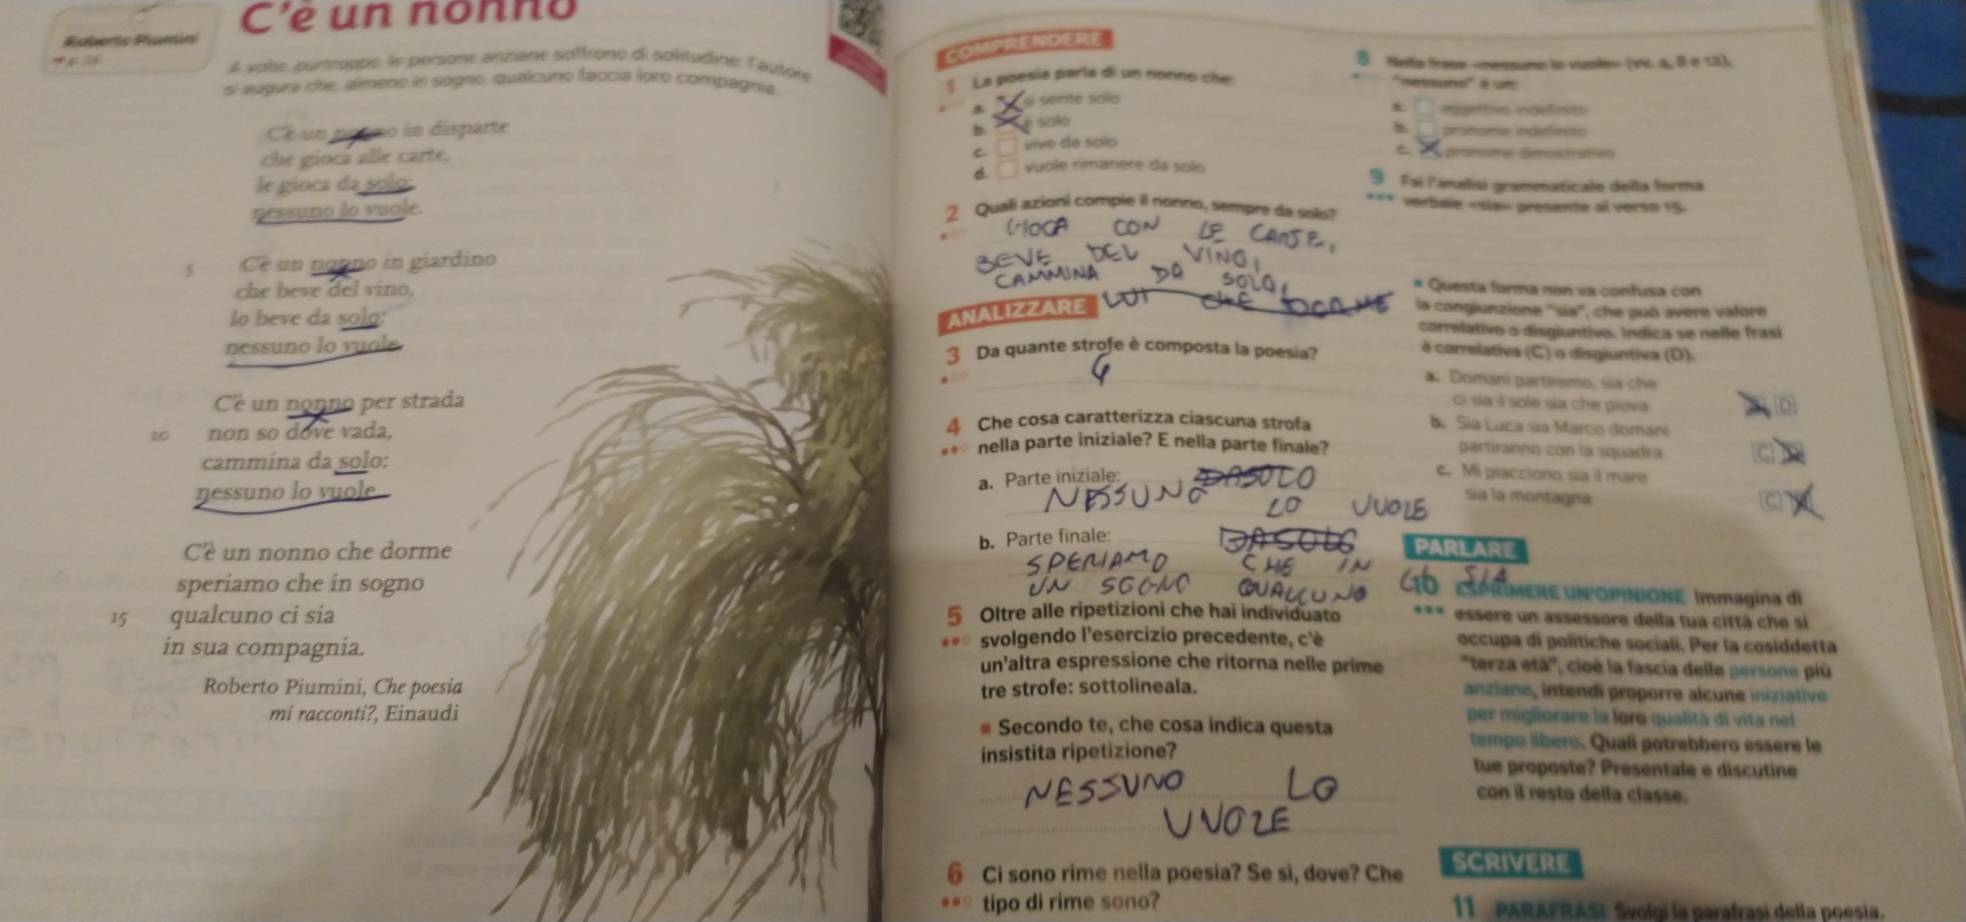 C'è un nonno
Roberto Piumini
A volte, purtroppo, le persone anziane soffrono di solitudine: l'autore
si augura che, almeno in sogno, qualcuno faccia loro compagnia.
C'è un nonno in disparte
che gioca alle carte,
le gioca da solo:
nessuno lo vuole.
5 C'è un nonno in giardino
che beve del vino,
lo beve da solo:
nessuno lo vuole.
C'è un nonno per strada
10 non so dove vada,
cammina da solo:
nessuno lo vuole.
C'è un nonno che dorme
speriamo che in sogno
15 qualcuno ci sia
in sua compagnia.
Roberto Piumini, Che poesia
mi racconti?, Einaudi
COMPRENDERE
1 La poesia parla di un nonno che:
a. si sente solo
b. è solo
c. vive da solo
d. vuole rimanere da solo
2 Quali azioni compie il nonno, sempre da solo?
GIOCA CON LE CARTE,
BEVE DEL VINO,
CAMMINA DA SOLO,
LUI CHE
ANALIZZARE
3 Da quante strofe è composta la poesia?
4
4 Che cosa caratterizza ciascuna strofa
nella parte iniziale? E nella parte finale?
a. Parte iniziale: DA SOLO
NESSUNO LO VUOLE
b. Parte finale: DA SOLO
SPERIAMO CHE IN
UN SOGNO QUALCUNO CI SIA
5 Oltre alle ripetizioni che hai individuato
svolgendo l'esercizio precedente, c'è
un'altra espressione che ritorna nelle prime
tre strofe: sottolineala.
Secondo te, che cosa indica questa
insistita ripetizione?
NESSUNO LO
VUOLE
6 Ci sono rime nella poesia? Se sì, dove? Che
tipo di rime sono?
8 Nella frase «nessuno lo vuole» (vv. 4, 8 e 12),
"nessuno" è un:
a. aggettivo indefinito
b. pronome indefinito
c. pronome dimostrativo
9 Fai l'analisi grammaticale della forma
verbale «sia» presente al verso 15.
Questa forma non va confusa con
la congiunzione "sia", che può avere valore
correlativo o disgiuntivo. Indica se nelle frasi
è correlativa (C) o disgiuntiva (D).
a. Domani partiremo, sia che
ci sia il sole sia che piova D
b. Sia Luca sia Marco domani
partiranno con la squadra C D
c. Mi piacciono sia il mare
sia la montagna C
PARLARE
10 ESPRIMERE UN'OPINIONE Immagina di
essere un assessore della tua città che si
occupa di politiche sociali. Per la cosiddetta
"terza età", cioè la fascia delle persone più
anziane, intendi proporre alcune iniziative
per migliorare la loro qualità di vita nel
tempo libero. Quali potrebbero essere le
tue proposte? Presentale e discutine
con il resto della classe.
SCRIVERE
11 PARAFRASI Svolgi la parafrasi della poesia.